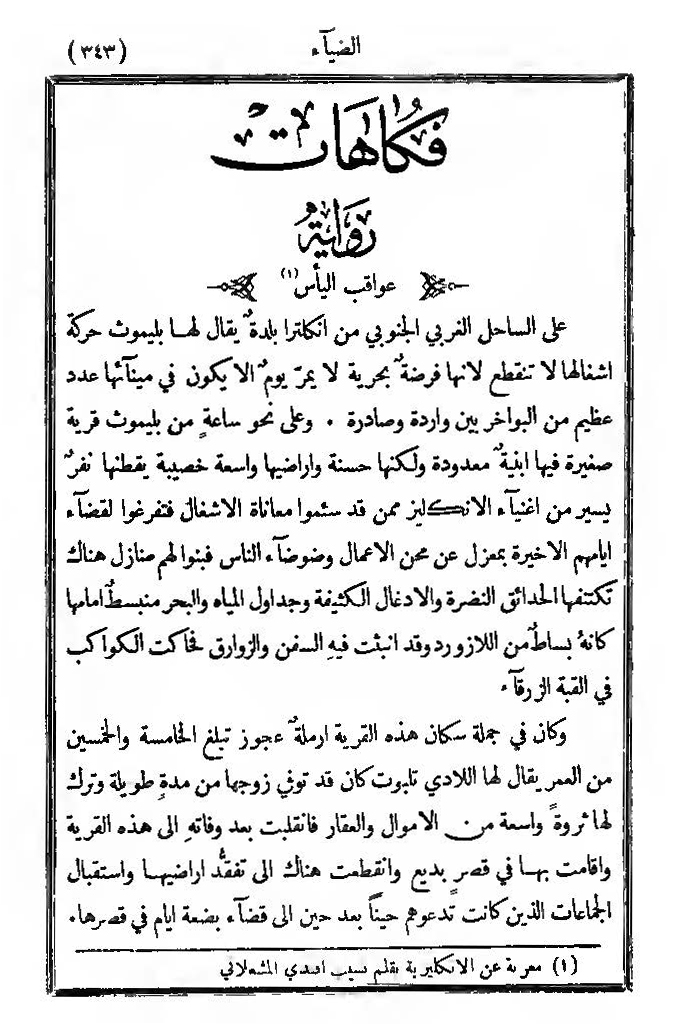 الضيآء
(٣٤٣)
فكاهات
رواية
عواقب اليأس (١)
على الساحل الغربي الجنوبي من انكلترا بلدةٌ يقال لهـا بليموث حركة
اشغالها لا تنقطع لانها فرضةٌ بحرية لا يمرّ يومٌ الا يكون في مينآئها عدد
عظيم من البواخر بين واردة وصادرة . وعلى نحو ساعةٍ من بليموث قرية
صغيرة فيها ابنيةٌ معدودة ولكنها حسنة واراضيها واسعة خصيبة يقطنها نفرٌ
يسير من اغنيآء الانكليز ممن قد سئموا معاناة الاشغال فتفرغوا لقضآء
ايامهم الاخيرة بمعزل عن محن الاعمال وضوضآء الناس فبنوا لهم منازل هناك
تكتنفها الحدائق النضرة والادغال الكثيفة وجداول المياه والبحر منبسطٌ امامها
كانهُ بساطٌ من اللازورد وقد انبثت فيهِ السفن والزوارق فحاكت الكواكب
في القبة الزرقآء .
وكان في جملة سكان هذه القرية ارملةٌ عجوز تبلغ الخامسة والخمسين
من العمر يقال لها اللادي تلبوت كان قد توفي زوجها من مدةٍ طويلة وترك
لها ثروةً واسعة من الاموال والعقار فانقلبت بعد وفاتهِ الى هذه القرية
واقامت بهـا في قصرٍ بديع وانقطعت هناك الى تفقُّد اراضيهـا واستقبال
الجماعات الذين كانت تدعوهم حيناً بعد حين الى قضآء بضعة ايام في قصرها.
(١) معربة عن الانكليزية بقلم نسيب افندي المشعلاني